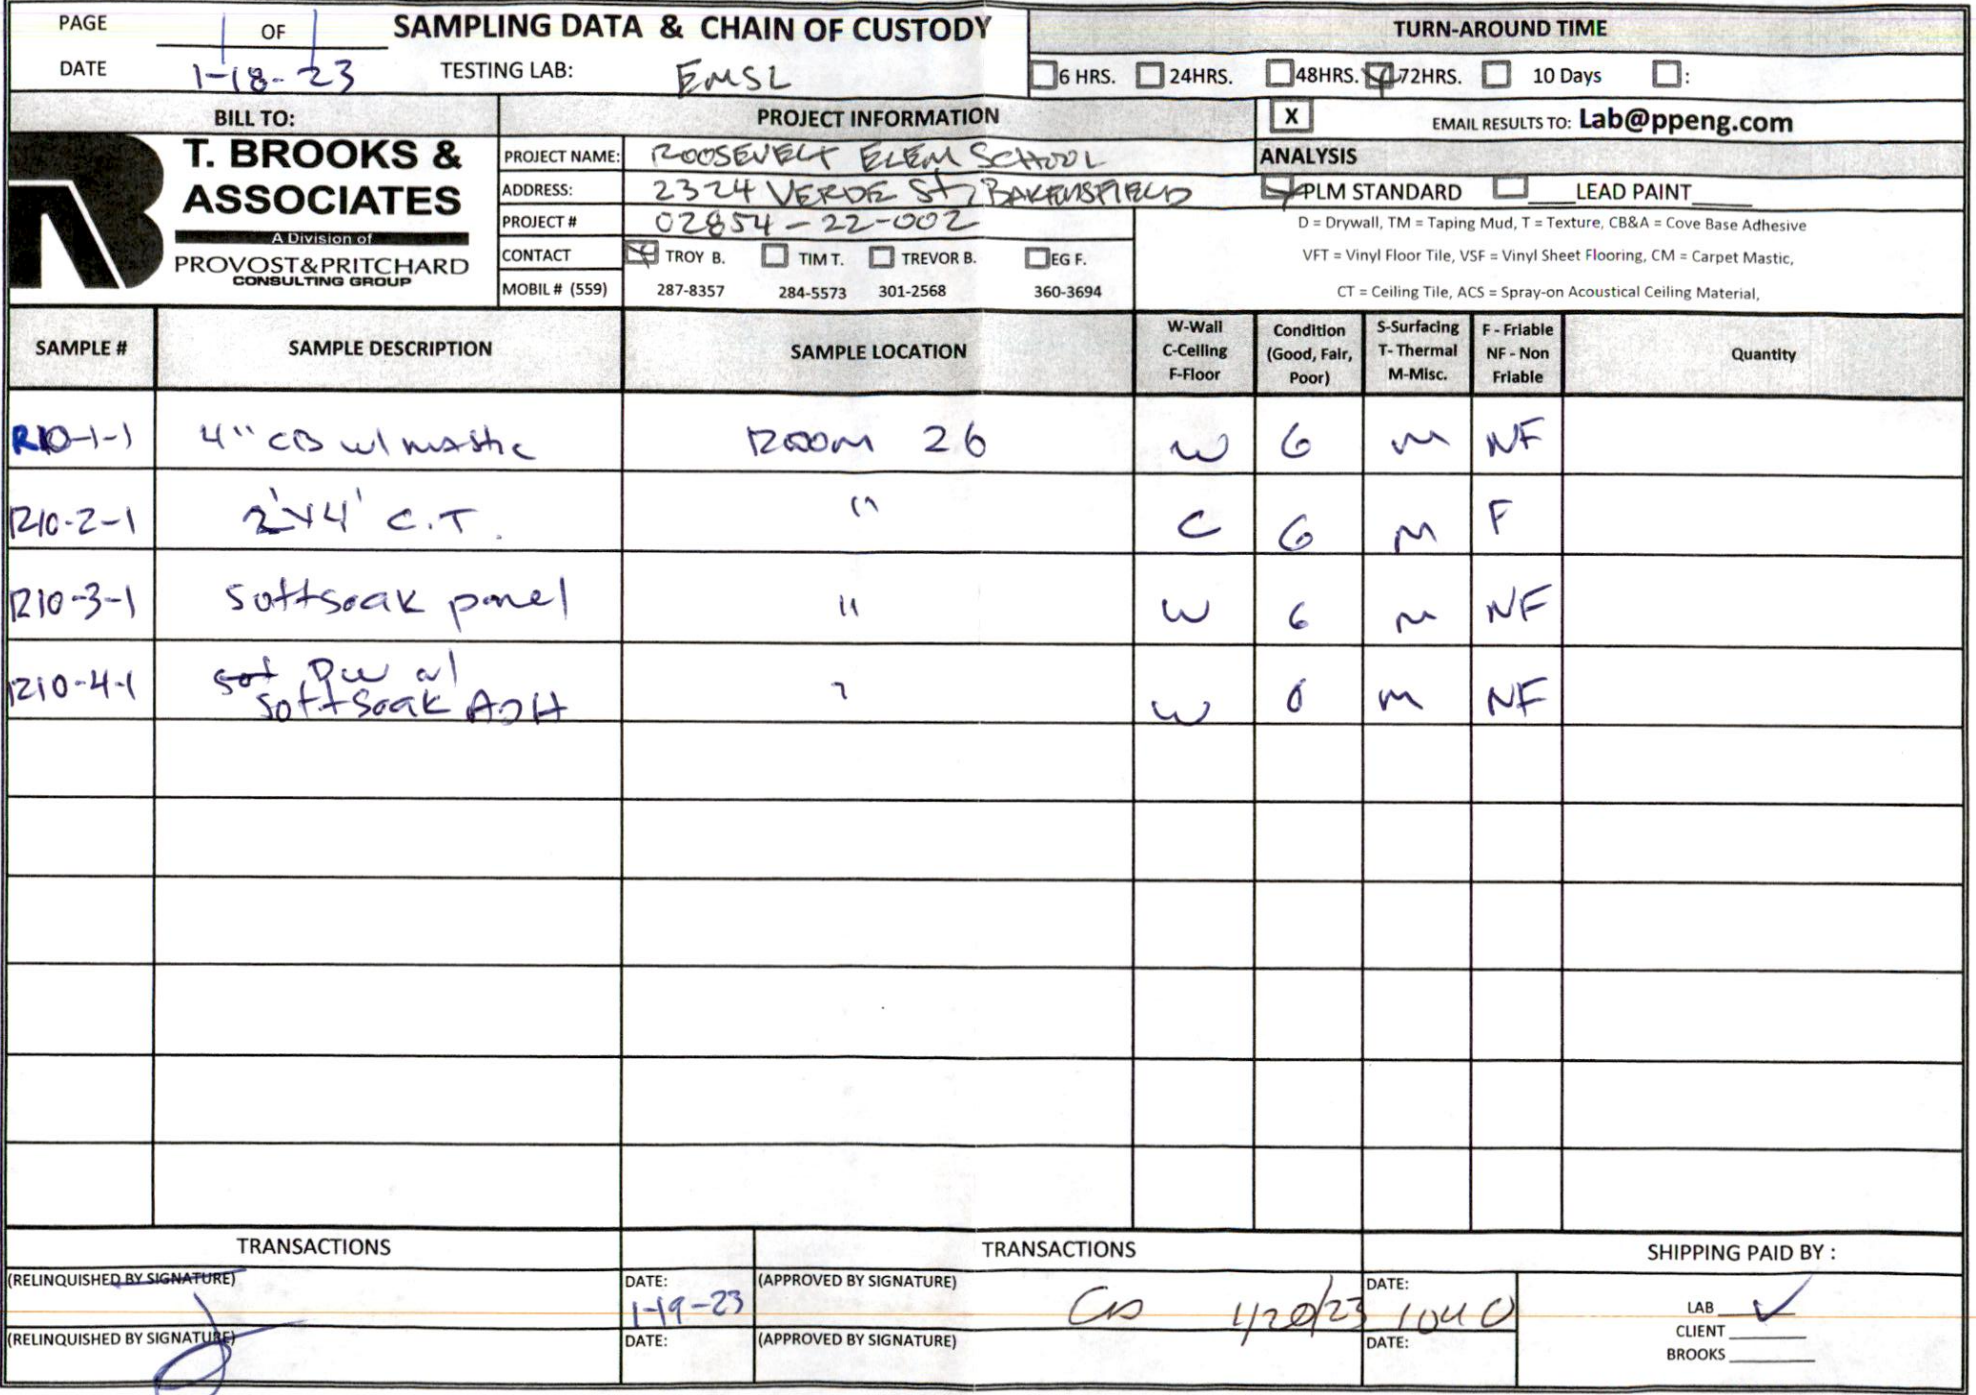 PAGE 1 OF 1 SAMPLING DATA & CHAIN OF CUSTODY TURN-AROUND TIME
DATE 1-18-23 TESTING LAB: EMSL 6 HRS. 24HRS. 48HRS. 72HRS. 10 Days :
BILL TO: PROJECT INFORMATION X EMAIL RESULTS TO: Lab@ppeng.com
T. BROOKS &
ASSOCIATES
A Division of
PROVOST&PRITCHARD
CONSULTING GROUP
PROJECT NAME: ROOSEVELT ELEM SCHOOL
ADDRESS: 2324 VERDE St, BAKERSFIELD
PROJECT # 02854-22-002
CONTACT TROY B. TIM T. TREVOR B. EG F.
MOBIL # (559) 287-8357 284-5573 301-2568 360-3694
ANALYSIS
PLM STANDARD ____LEAD PAINT____
D = Drywall, TM = Taping Mud, T = Texture, CB&A = Cove Base Adhesive
VFT = Vinyl Floor Tile, VSF = Vinyl Sheet Flooring, CM = Carpet Mastic,
CT = Ceiling Tile, ACS = Spray-on Acoustical Ceiling Material,
SAMPLE # SAMPLE DESCRIPTION SAMPLE LOCATION
W-Wall
C-Ceiling
F-Floor
Condition
(Good, Fair,
Poor)
S-Surfacing
T- Thermal
M-Misc.
F - Friable
NF - Non
Friable
Quantity
R10-1-1 4" CB w/ mastic ROOM 26 W G M NF
R10-2-1 2'x4' C.T. " C G M F
R10-3-1 softsoak panel " W G M NF
R10-4-1 DW w/
softsoak ADH W M NF
TRANSACTIONS TRANSACTIONS SHIPPING PAID BY :
(RELINQUISHED BY SIGNATURE) DATE: 1-19-23 (APPROVED BY SIGNATURE) 1/20/23 DATE: 1040
LAB ✓
(RELINQUISHED BY SIGNATURE) DATE: (APPROVED BY SIGNATURE) DATE:
CLIENT
BROOKS